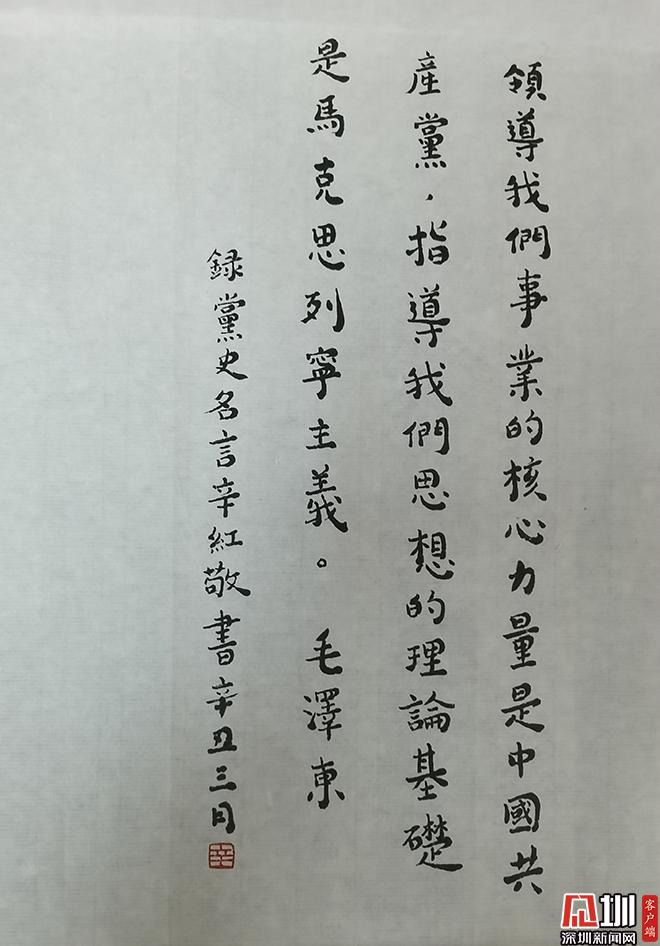 領導我們事業的核心力量是中國共
產黨，指導我們思想的理論基礎
是馬克思列寧主義。 毛澤東
録黨史名言辛紅敬書辛丑三月
辛
深圳新闻网
客户端